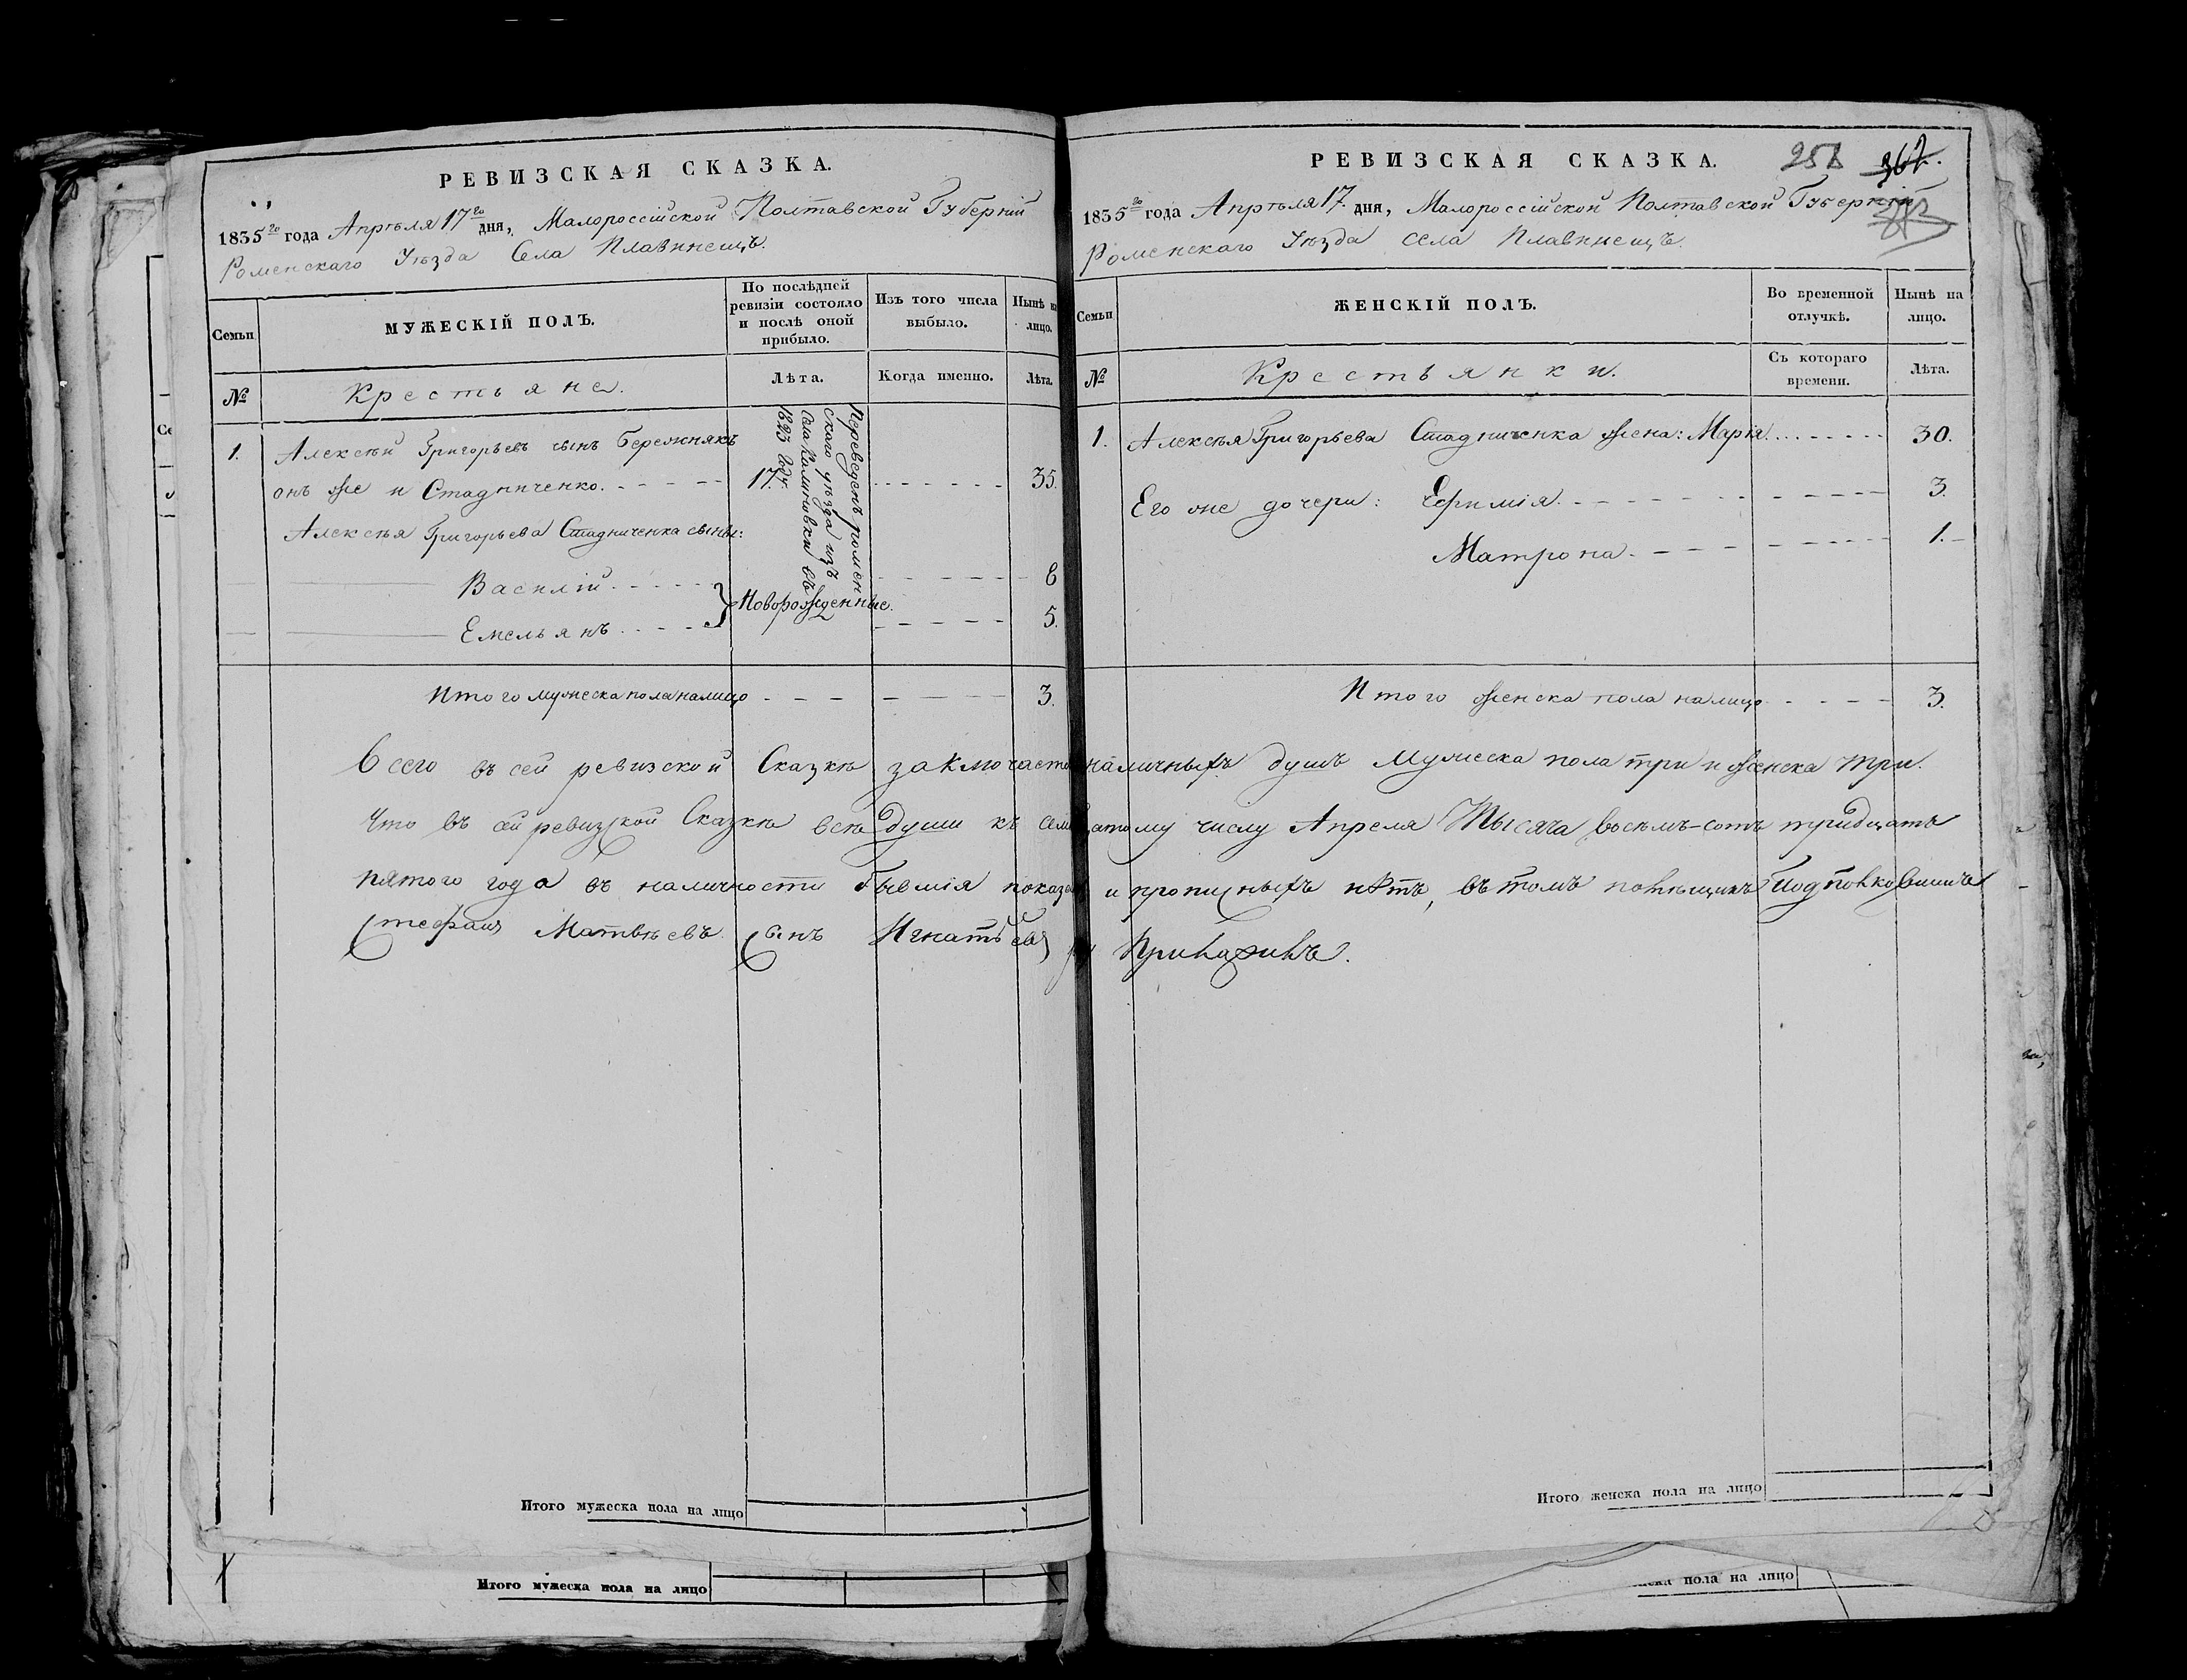 РЕВИЗСКАЯ СКАЗКА.
1835го года Апрѣля 17го дня, Малороссійской Полтавской Губерній
Роменскаго Уѣзда Села Плавинещъ.
Семьи
МУЖЕСКІЙ ПОЛЪ.
По послѣдней ревизіи состояло и послѣ оной прибыло.
Изъ того числа выбыло.
Нынѣ на лицо.
№
Крестьяне.
Лѣта.
Когда именно.
Лѣта.
1. Алексѣй Григорьевъ сынъ Бережнякъ
онъ же и Стадниченко. 17. 35.
Переведенъ ромен
скаго уѣзда изъ
села Калиновки въ
1823 году
Алексѣя Григорьева Стадниченка сыны:
Василій. 6
Емельянъ. 5.
Новорожденные.
Итого мужеска пола налицо 3.
РЕВИЗСКАЯ СКАЗКА. 258 367.
1835го года Апрѣля 17. дня, Малороссійской Полтавской Губерній
Роменскаго Уѣзда села Плавинещъ.
Семьи
ЖЕНСКІЙ ПОЛЪ.
Во временной отлучкѣ.
Нынѣ на лицо.
№
Крестьянки.
Съ котораго времени.
Лѣта.
1. Алексѣя Григорьева Стадниченка жена: Марія. 30.
Его же дочери: Ефимія. 3.
Матрона. 1.
Итого женска пола налицо 3.
Всего въ сей ревизской Сказкѣ заключается наличныхъ душъ Мужеска пола три и женска три.
Что въ сей ревизской Сказкѣ всѣ души къ семнадцатому числу Апреля Тысяча восемъ-сотъ тридцать
пятого года въ наличности бывшія показаны и прописныхъ нѣтъ, въ томъ
Стефанъ Матвѣевъ Сынъ Игнатьевъ
Итого мужеска пола на лицо
Итого женска пола на лицо
Итого мужеска пола на лицо
пола на лицо